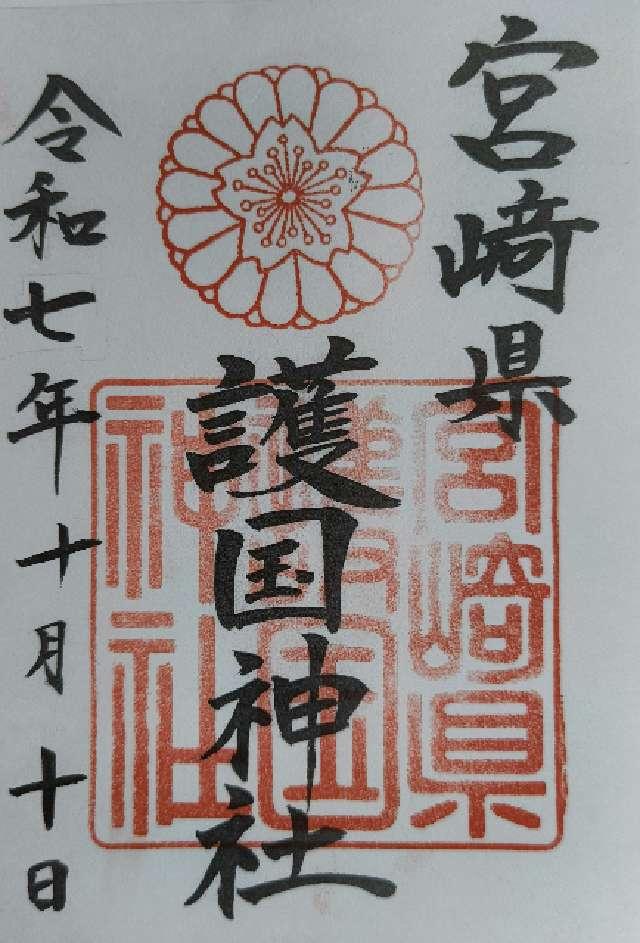 宮﨑県
護国神社
令和七年十月十日
宮崎県
護国
神社